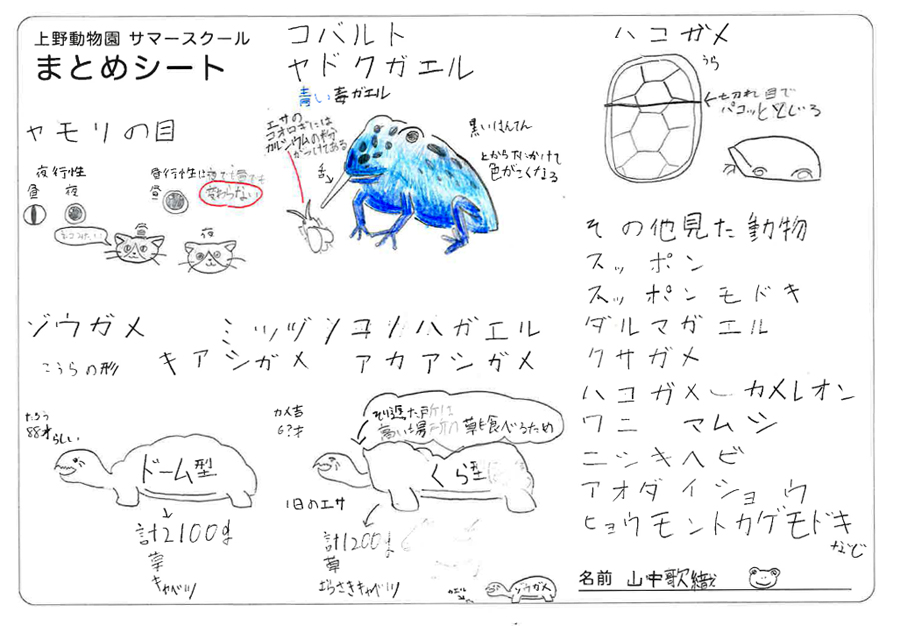 上野動物園 サマースクール
まとめシート
コバルト
ヤドクガエル
青い毒ガエル
エサの
コオロギには
カルシウムの粉
がつけてある
舌
黒いはんてん
上から下にかけて
色がこくなる
ハコガメ
うら
切れ目で
パコッととじる
ヤモリの目
夜行性
昼 夜
昼行性は夜でも昼でも
変わらない
昼
ネコみたい
昼
夜
その他見た動物
スッポン
スッポンモドキ
ダルマガエル
クサガメ
ハコガメ カメレオン
ワニ マムシ
ニシキヘビ
アオダイショウ
ヒョウモントカゲモドキ
など
ゾウガメ
ミツヅノコノハガエル
こうらの形
キアシガメ アカアシガメ
たろう
88才らしい
ドーム型
計2100g
草
キャベツ
カメ吉
6?才
そり返った所は
高い場所の草を食べるため
くら型
1日のエサ
計1200g
草
むらさきキャベツ
ゾウガメ
名前 山中歌織